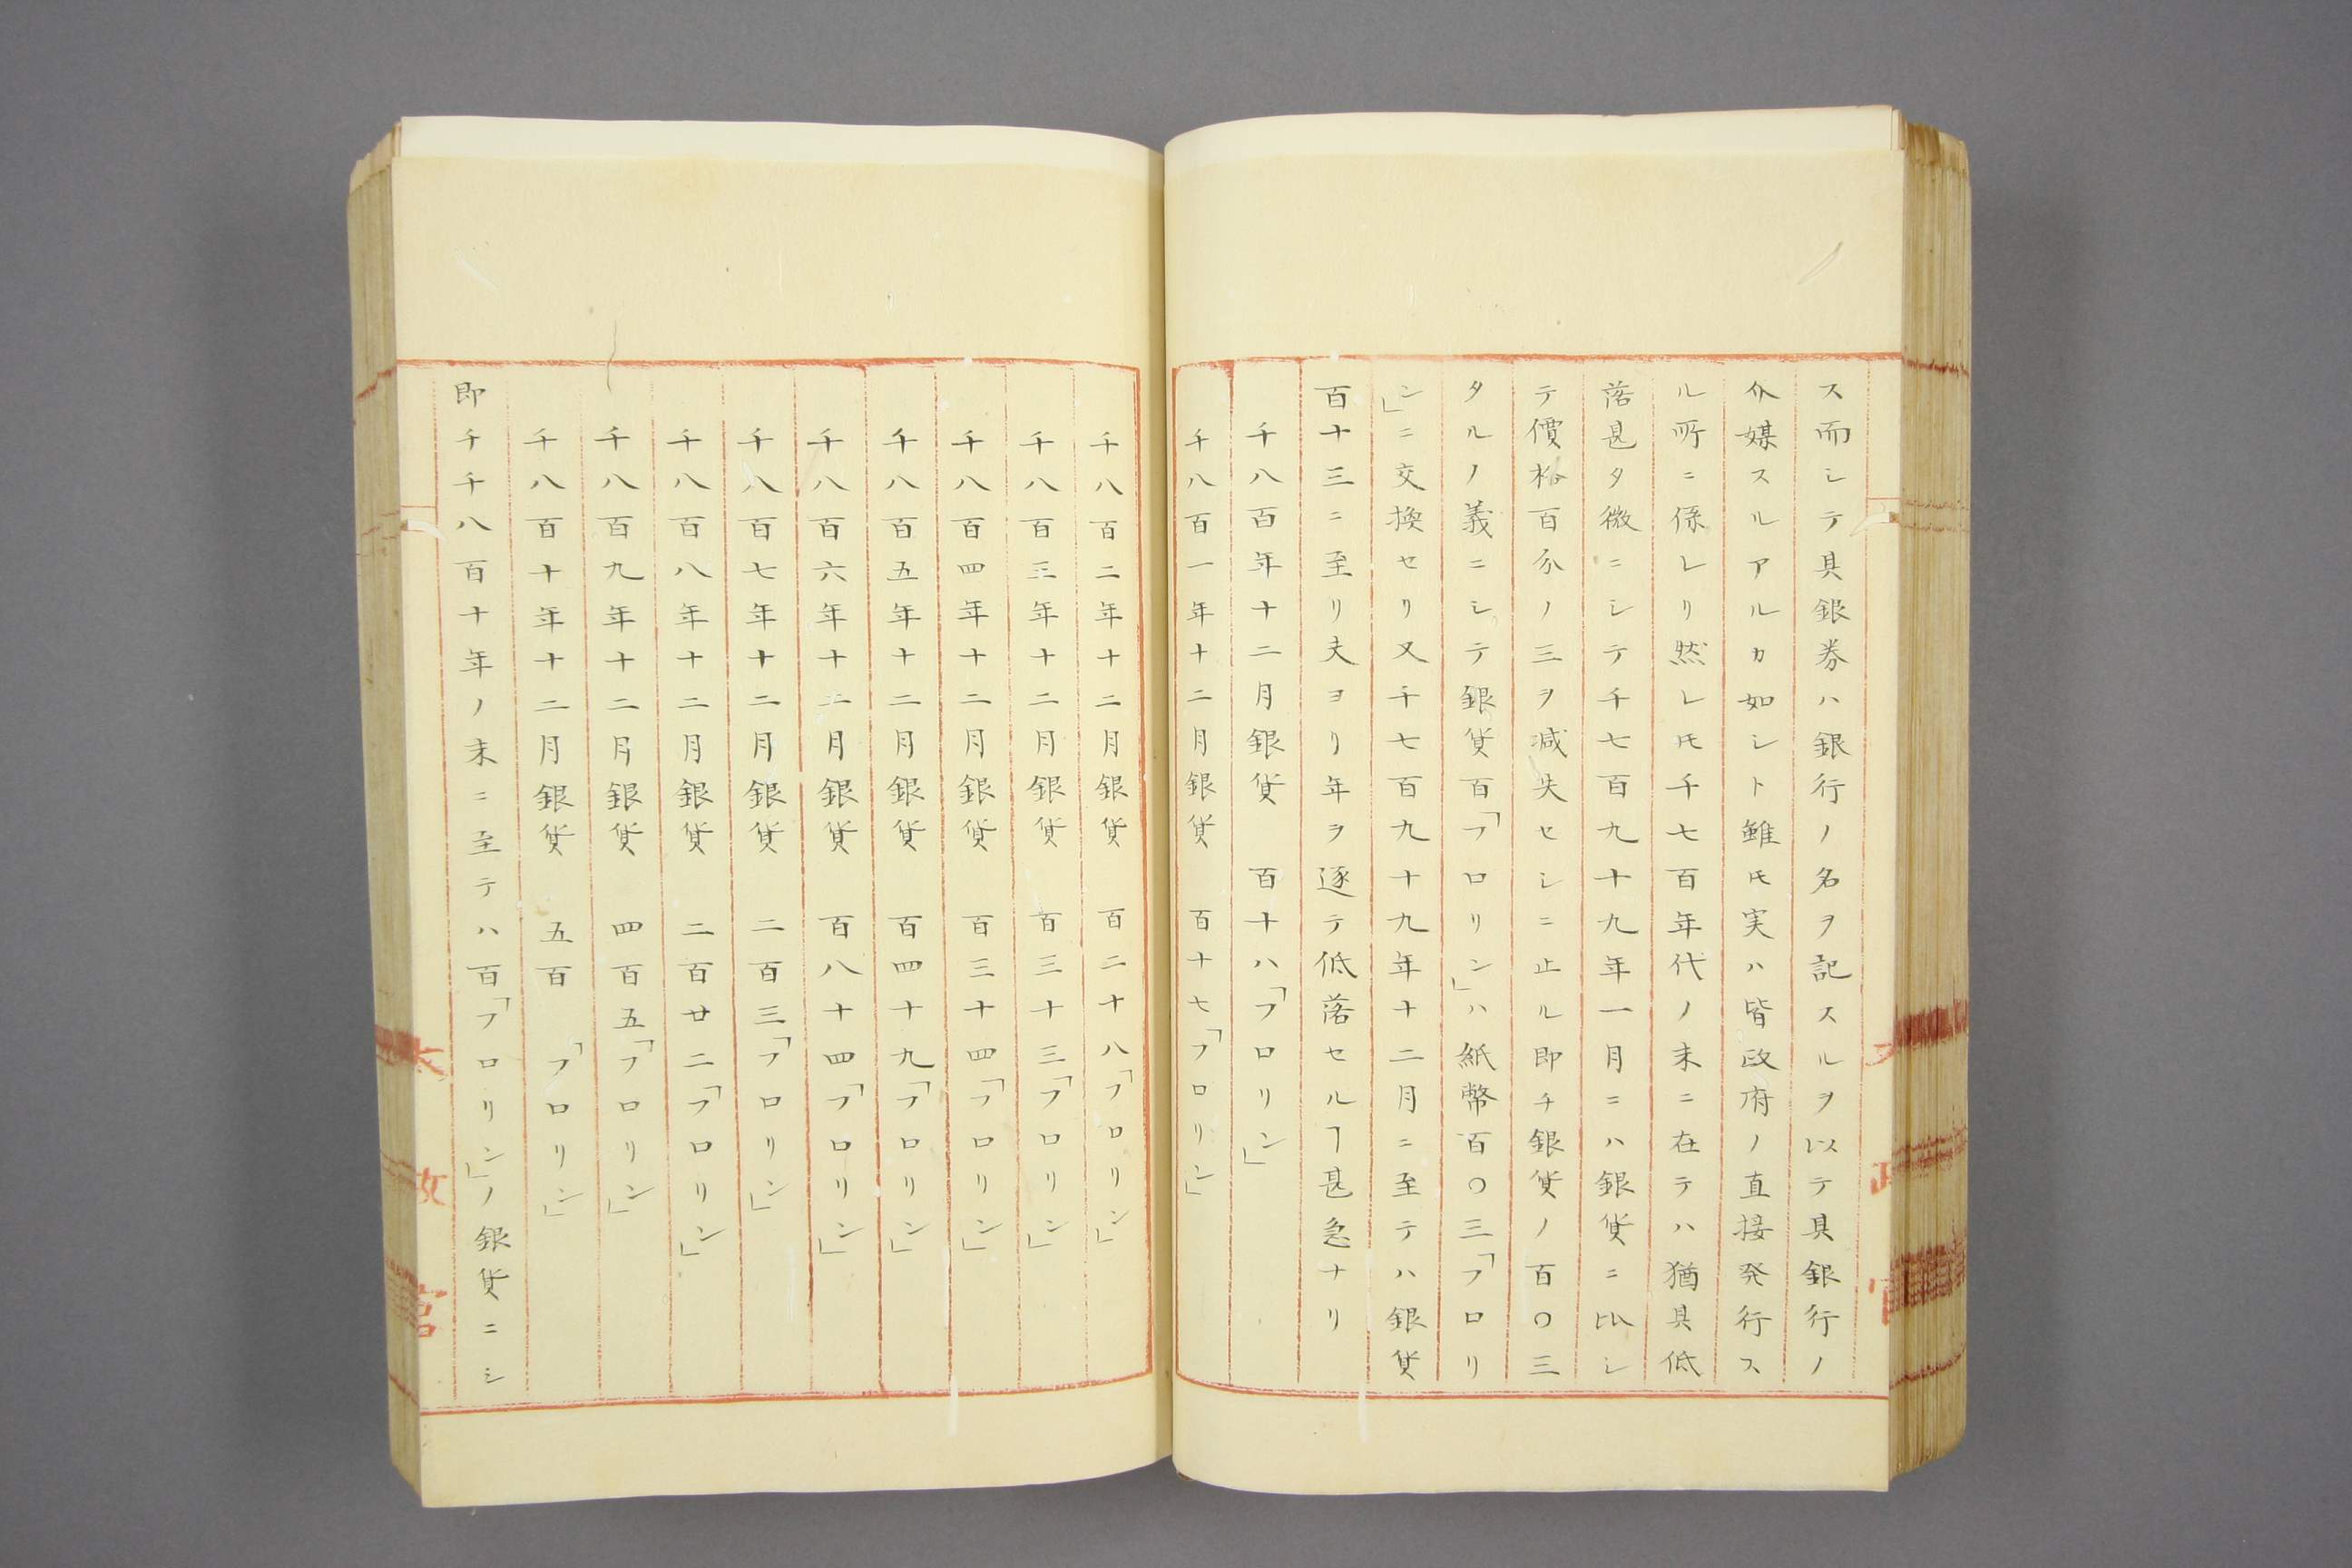 ス而シテ其銀券ハ銀行ノ名ヲ記スルヲ以テ其銀行ノ
介媒スルアルカ如シト雖𪜈実ハ皆政府ノ直接発行ス
ル所ニ係レリ然レ𪜈千七百年代ノ末ニ在テハ猶其低
落甚タ微ニシテ千七百九十九年一月ニハ銀貨ニ比シ
テ價格百分ノ三ヲ減失セシニ止ル即チ銀貨ノ百〇三
タルノ義ニシテ銀貨百「フロリン」ハ紙幣百〇三「フロリ
ン」ニ交換セリ又千七百九十九年十二月ニ至テハ銀貨
百十三ニ至リ夫ヨリ年ヲ逐テ低落セルヿ甚急ナリ
千八百年十二月銀貨　百十八「フロリン」
千八百一年十二月銀貨　百十七「フロリン」
千八百二年十二月銀貨　百二十八「フロリン」
千八百三年十二月銀貨　百三十三「フロリン」
千八百四年十二月銀貨　百三十四「フロリン」
千八百五年十二月銀貨　百四十九「フロリン」
千八百六年十二月銀貨　百八十四「フロリン」
千八百七年十二月銀貨　二百三「フロリン」
千八百八年十二月銀貨　二百廿二「フロリン」
千八百九年十二月銀貨　四百五「フロリン」
千八百十年十二月銀貨　五百　「フロリン」
即千千八百十年ノ末ニ至テハ百「フロリン」ノ銀貨ニシ
太政官